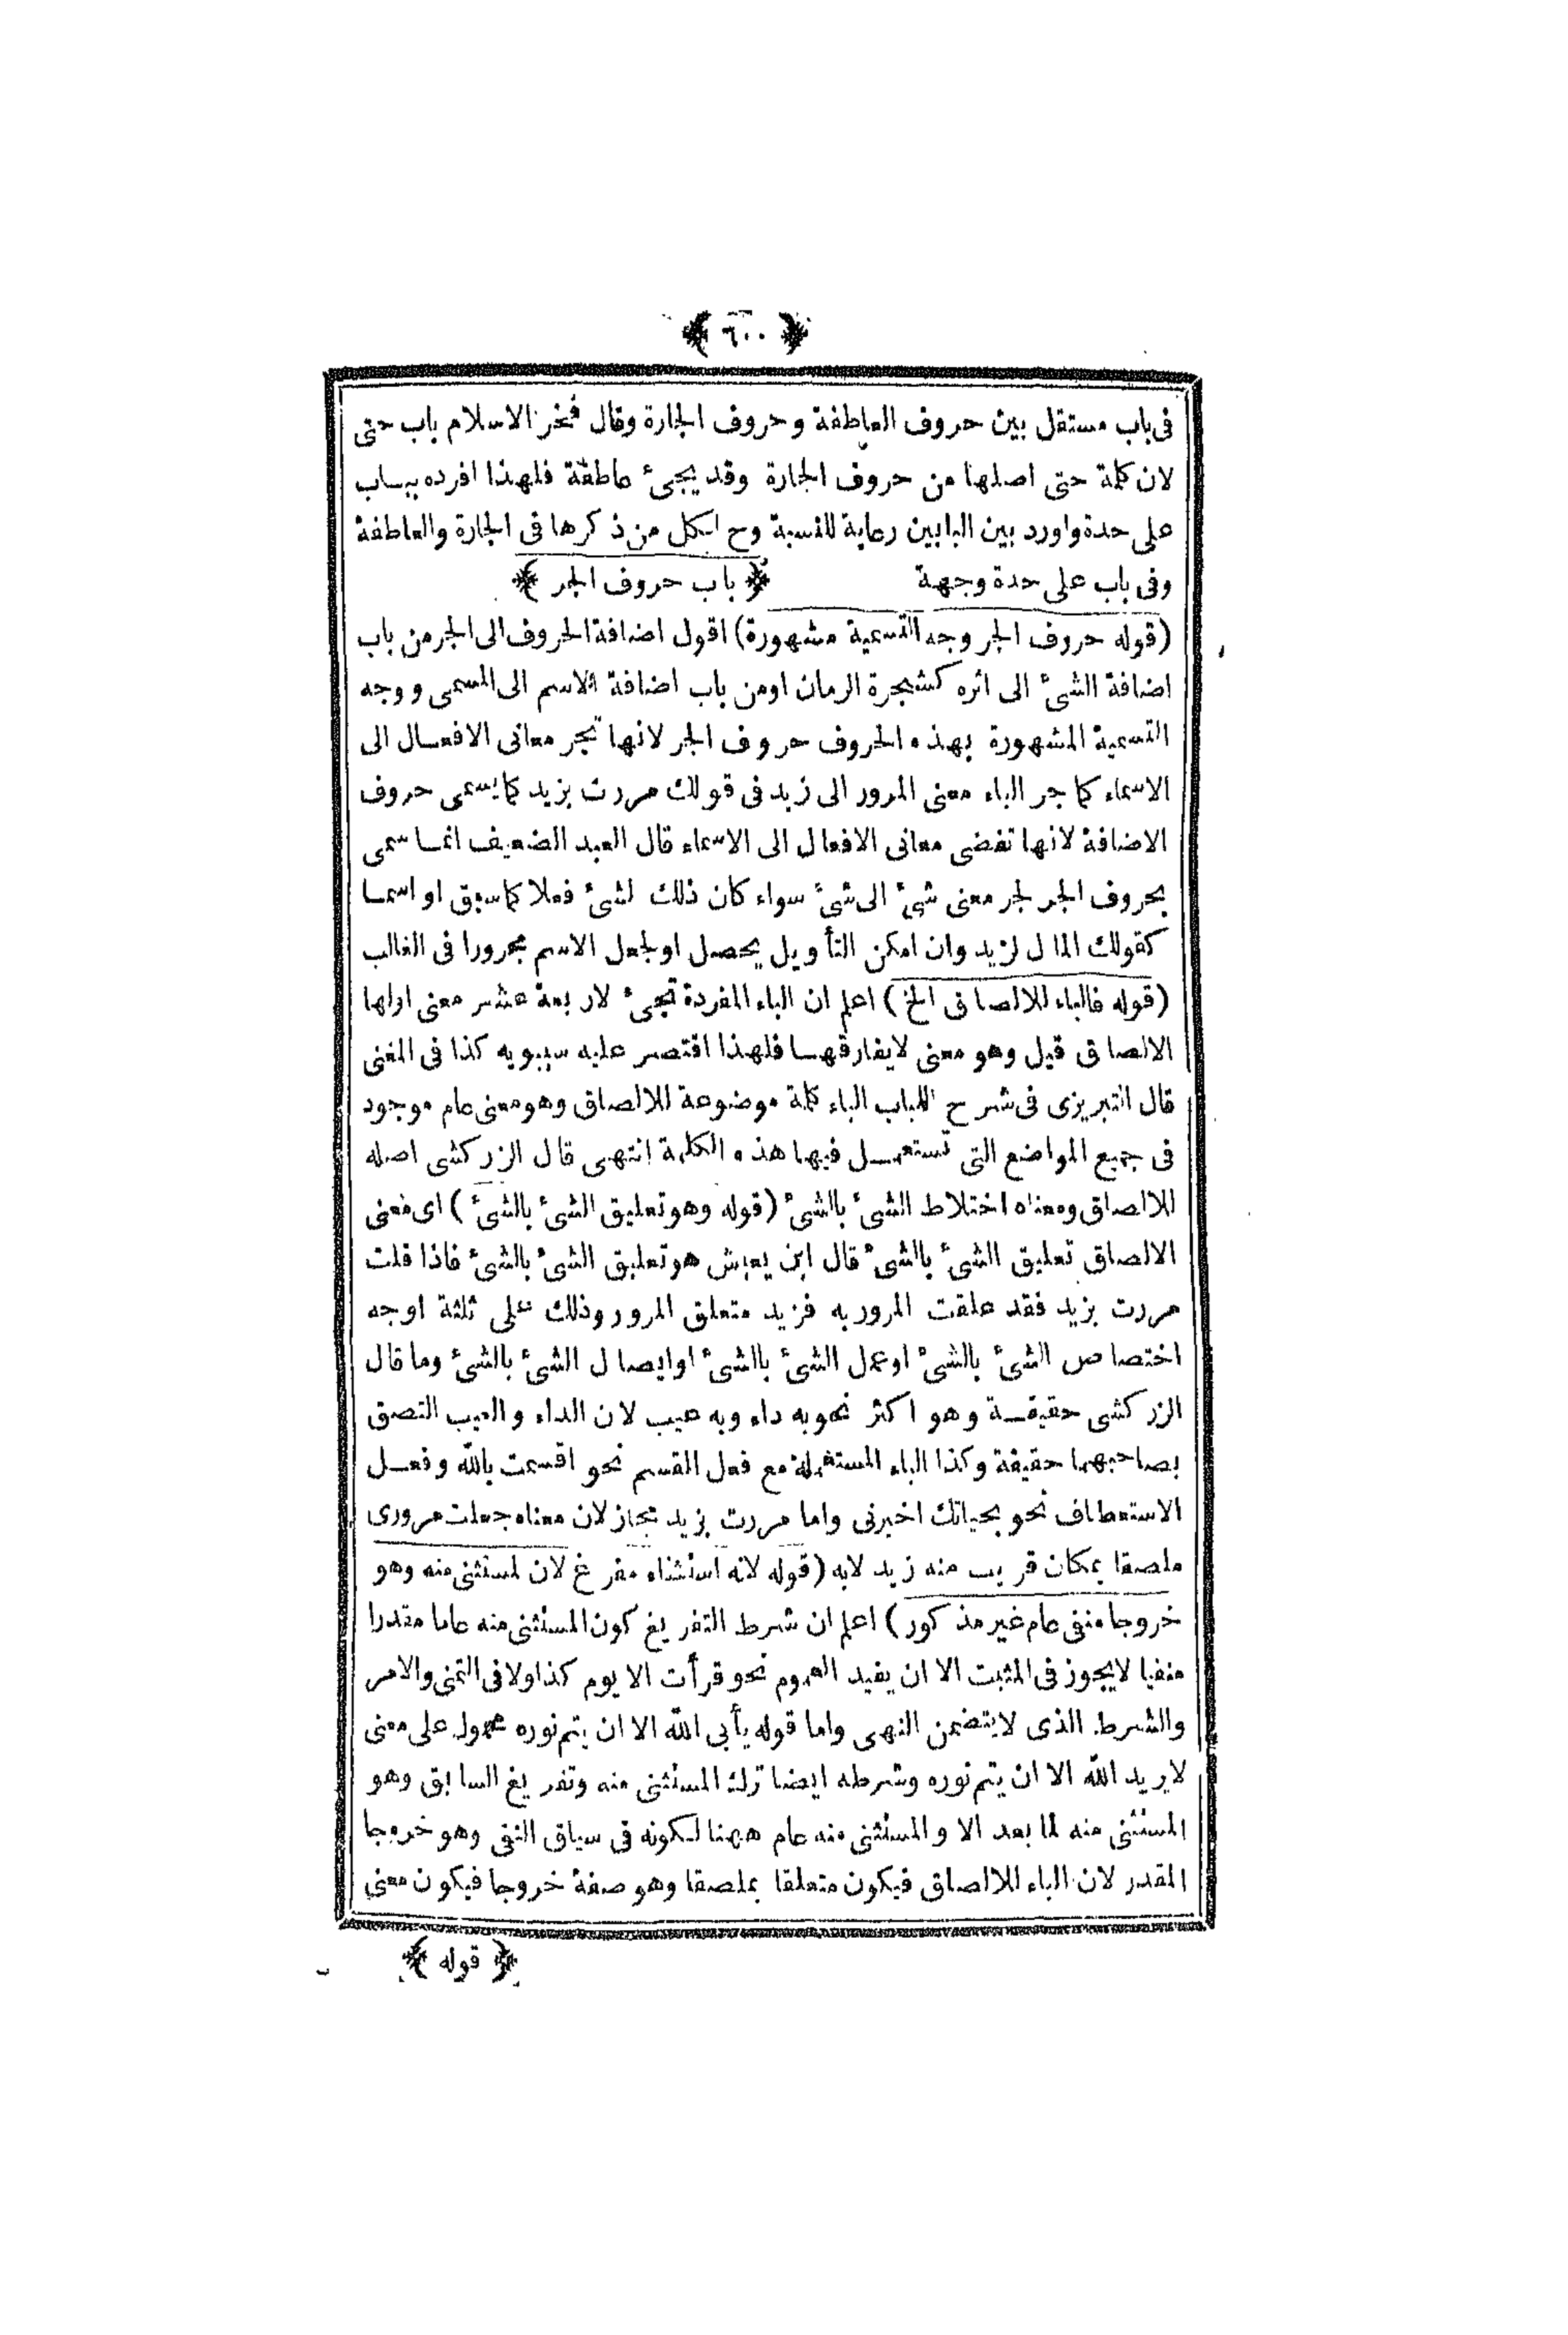 ﴿ ٦٠٠ ﴾
فى باب مستقل بين حروف العاطفة وحروف الجارة وقال فخر الاسلام باب حتى
لان كلمة حتى اصلها من حروف الجارة وقد يجئ عاطفة فلهذا افرده ببساب
على حدة واورد بين البابين رعاية للنسبة وح لكل من ذكرها فى الجارة والعاطفة
وفى باب على حدة وجهة ﴿ باب حروف الجر ﴾
(قوله حروف الجر وجه التسمية مشهورة) اقول اضافة الحروف الى الجر من باب
اضافة الشئ الى اثره كشجرة الرمان اومن باب اضافة الاسم الى المسمى ووجه
التسمية المشهورة بهذه الحروف حروف الجر لانها تجر معانى الافعسال الى
الاسماء كما جر الباء معنى المرور الى زيد فى قولك مررت بزيد كما يسمى حروف
الاضافة لانها تفضى معانى الافعال الى الاسماء قال العبد الضعيف انما سمى
بحروف الجر لجر معنى شئ الى شئ سواء كان ذلك لشئ فعلا كما سبق او اسمسا
كقولك المال لزيد وان امكن التأويل يحصل اولجعل الاسم مجرورا فى الغالب
(قوله فالباء للالصاق الخ) اعلم ان الباء المفردة تجئ لاربعة عشر معنى اولها
الالصاق قيل وهو معنى لايفارقهسا فلهذا اقتصر عليه سيبويه كذا فى المغنى
قال التبريزى فى شرح اللباب الباء كلمة موضوعة للالصاق وهو معنى عام موجود
فى جميع المواضع التى تستعمل فيها هذه الكلمة انتهى قال الزركشى اصله
للالصاق ومعناه اختلاط الشئ بالشئ (قوله وهو تعليق الشئ بالشئ) اى معنى
الالصاق تعليق الشئ بالشئ قال ابن يعيش هو تعليق الشئ بالشئ فاذا قلت
مررت بزيد فقد علقت المرور به فزيد متعلق المرور وذلك على ثلثة اوجه
اختصاص الشئ بالشئ اوعمل الشئ بالشئ اوايصال الشئ بالشئ وما قال
الزركشى حقيقة وهو اكثر نحو به داء وبه عيب لان الداء والعيب التصق
بصاحبهما حقيقة وكذا الباء المستعملة مع فعل القسم نحو اقسمت بالله وفعل
الاستعطاف نحو بحياتك اخبرنى واما مررت بزيد تجاز لان معناه جعلت مرورى
ملصقا بمكان قريب منه زيد لابه (قوله لانه استثناء مفرغ لان لمستثنى منه وهو
خروجا منفى عام غير مذكور) اعلم ان شرط التفريغ كون المستثنى منه عاما مقدرا
منفيا لايجوز فى المثبت الا ان يفيد العموم نحو قرأت الا يوم كذا ولا فى التمنى والامر
والشرط الذى لايتضمن النهى واما قوله يأبى الله الا ان يتم نوره محمول على معنى
لايريد الله الا ان يتم نوره وشرطه ايضا ترك المستثنى منه وتفريغ السابق وهو
المستثنى منه لما بعد الا والمستثنى منه عام ههنا لكونه فى سياق النفى وهو خروجا
المقدر لان الباء للالصاق فيكون متعلقا بملصقا وهو صفة خروجا فيكون معنى
﴿ قوله ﴾